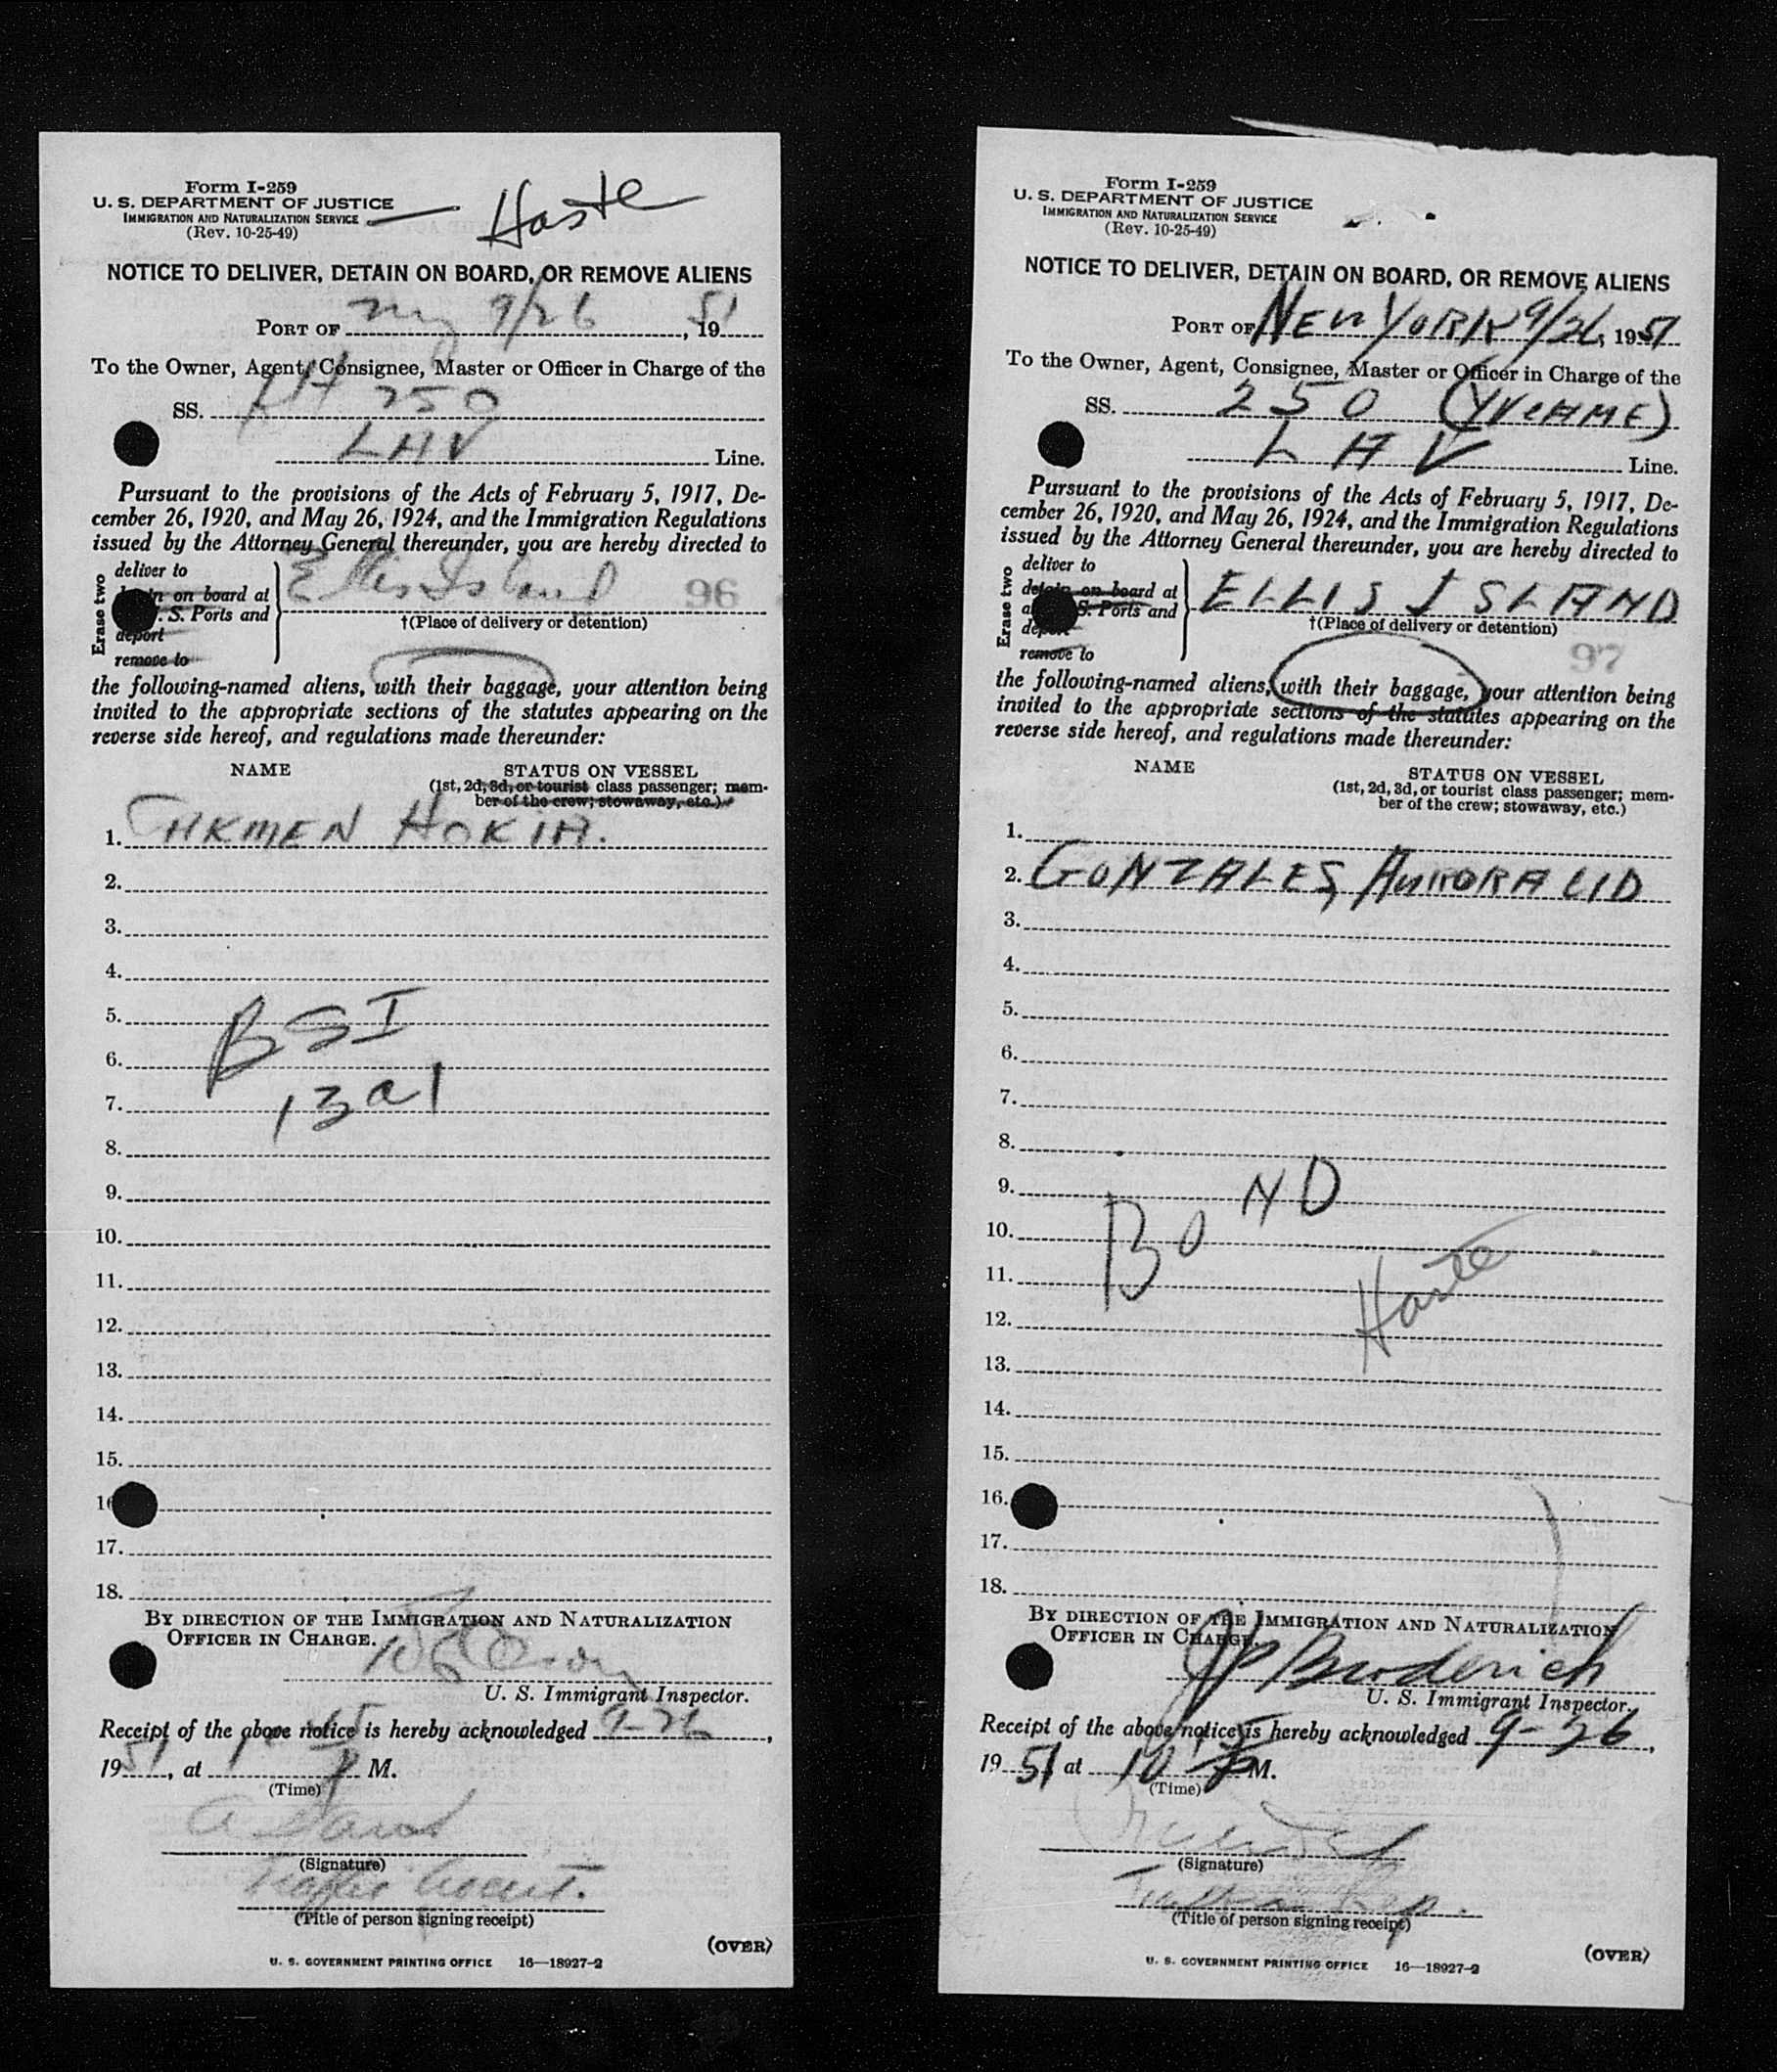 Form I-259
U. S. DEPARTMENT OF JUSTICE
IMMIGRATION AND NATURALIZATION SERVICE
(Rev. 10-25-49)
Haste
NOTICE TO DELIVER, DETAIN ON BOARD, OR REMOVE ALIENS
PORT OF NY 9/26, 1951
To the Owner, Agent, Consignee, Master or Officer in Charge of the
SS. 250
LAV Line.
Pursuant to the provisions of the Acts of February 5, 1917, De-
cember 26, 1920, and May 26, 1924, and the Immigration Regulations
issued by the Attorney General thereunder, you are hereby directed to
Erase two
deliver to
on board at
S. Ports and
deport
remove to
Ellis Island 96
†(Place of delivery or detention)
the following-named aliens, with their baggage, your attention being
invited to the appropriate sections of the statutes appearing on the
reverse side hereof, and regulations made thereunder:
NAME STATUS ON VESSEL
(1st, 2d, 3d, or tourist class passenger; mem-
ber of the crew; stowaway, etc.)
1. HOKIA.
2.
3.
4.
5. BSI
6.
7. 13a1
8.
9.
10.
11.
12.
13.
14.
15.
16
17.
18.
BY DIRECTION OF THE IMMIGRATION AND NATURALIZATION
OFFICER IN CHARGE.
U. S. Immigrant Inspector.
Receipt of the above notice is hereby acknowledged 9-26,
1951, at P M.
(Time)
(Signature)
Traffic Agent.
(Title of person signing receipt)
(OVER)
U. S. GOVERNMENT PRINTING OFFICE 16—18927-2
Form I-259
U. S. DEPARTMENT OF JUSTICE
IMMIGRATION AND NATURALIZATION SERVICE
(Rev. 10-25-49)
NOTICE TO DELIVER, DETAIN ON BOARD, OR REMOVE ALIENS
PORT OF NEW YORK 9/26, 1951
To the Owner, Agent, Consignee, Master or Officer in Charge of the
SS. 250
LAV Line.
Pursuant to the provisions of the Acts of February 5, 1917, De-
cember 26, 1920, and May 26, 1924, and the Immigration Regulations
issued by the Attorney General thereunder, you are hereby directed to
Erase two
deliver to
detain on board at
S. Ports and
remove to
ELLIS ISLAND
†(Place of delivery or detention)
97
the following-named aliens, with their baggage, your attention being
invited to the appropriate sections of the statutes appearing on the
reverse side hereof, and regulations made thereunder:
NAME STATUS ON VESSEL
(1st, 2d, 3d, or tourist class passenger; mem-
ber of the crew; stowaway, etc.)
1.
2. GONZALES, AURORA CID
3.
4.
5.
6.
7.
8.
9.
10. BOND
11. Haste
12.
13.
14.
15.
16.
17.
18.
BY DIRECTION OF THE IMMIGRATION AND NATURALIZATION
OFFICER IN CHARGE.
JP Broderick
U. S. Immigrant Inspector.
Receipt of the above notice is hereby acknowledged 9-26,
1951 at 10 P M.
(Time)
(Signature)
Rep.
(Title of person signing receipt)
(OVER)
U. S. GOVERNMENT PRINTING OFFICE 16—18927-2